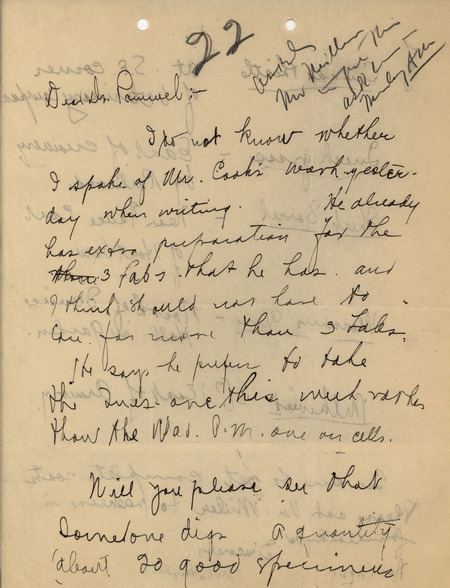 22
Mr. Miller
ask
Dear Dr. Pammel:-
I do not know whether
I spoke of Mr. Cook's work yester-
day when writing. He already
has extra preparation for the
3 labs. that he has and
I think should not have to
care for more than 3 labs.
He says he prefers to take
the Tues. one this week rather
than the Wed. P.M. one on cells.
Will you please see that
someone digs a quantity
(about 20 good specimens